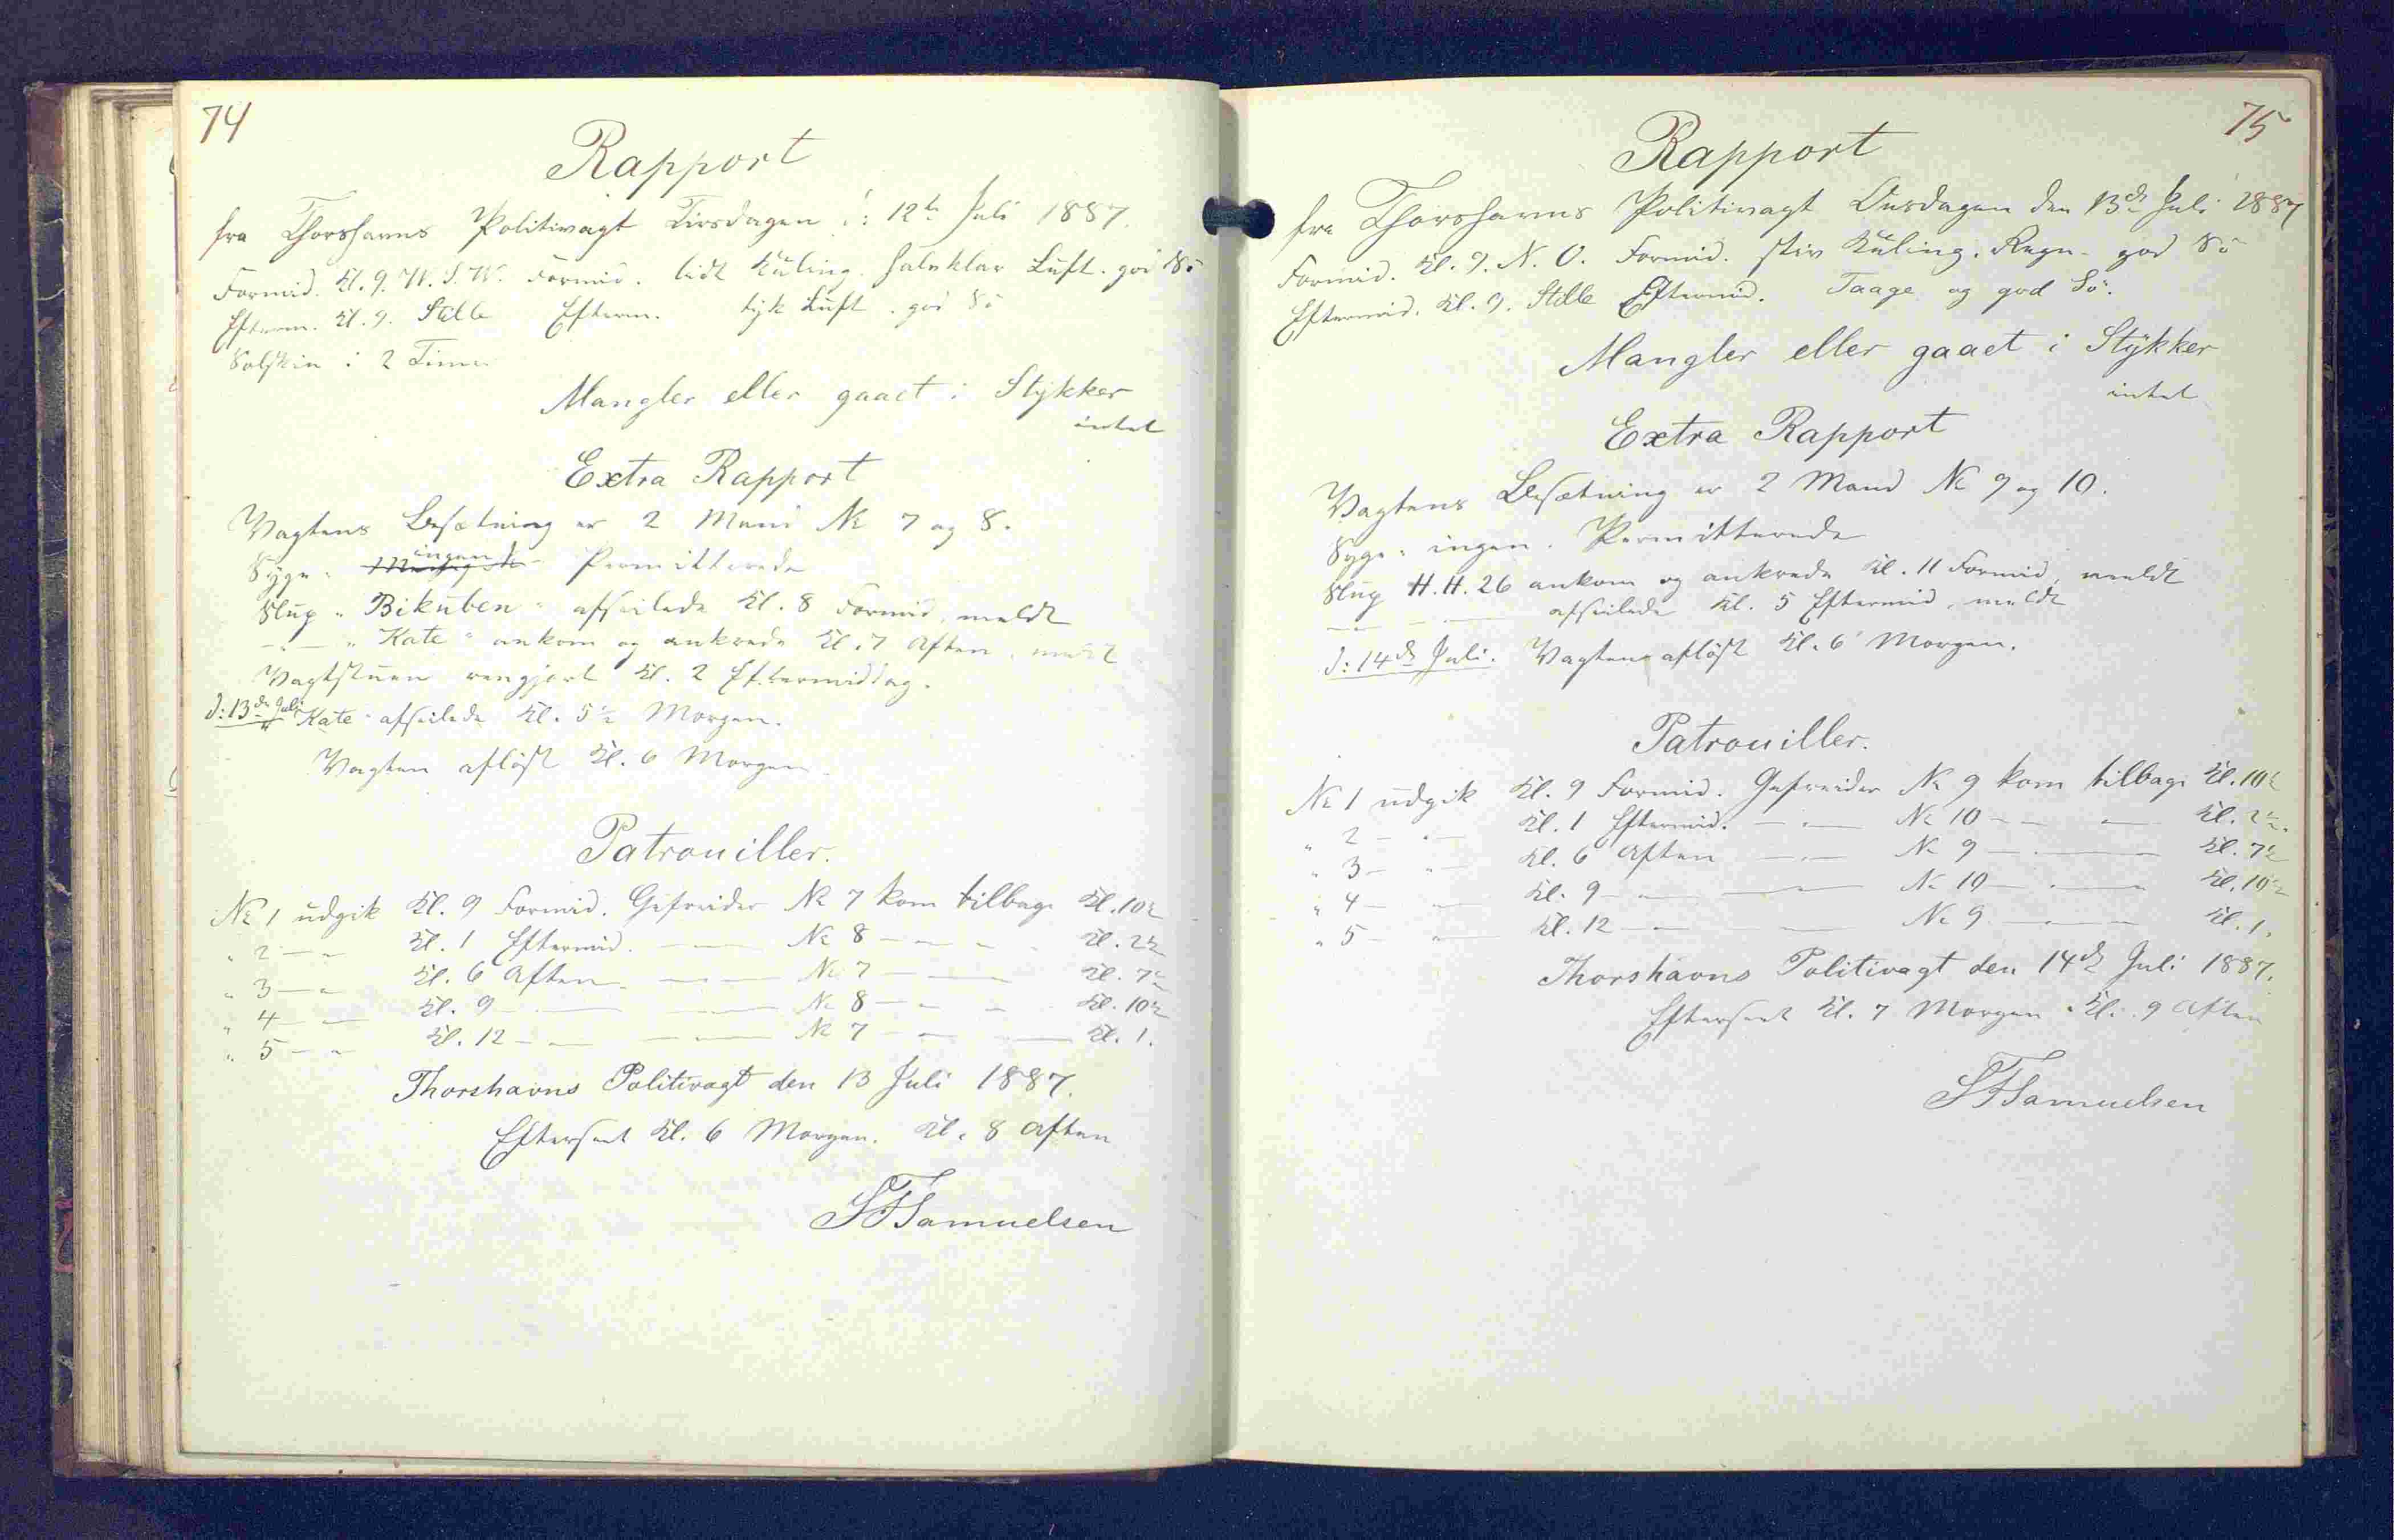 74
Rapport
fra Thorshavns Politivagt Tirsdagen d: 12te Juli 1887.
Formid. Kl. 9. W.S.W. Formid. lidt Kuling. halvklar Luft. god Sö
Efterm. Kl. 9. Stille Efterm. tyk Luft. god Sö
Solskin i 2 Timer
Mangler eller gaaet i Stykker
intet
Extra Rapport
Vagtens Besætning er 2 Mand No 7 og 8.
Syge: ingen Permitterede
Slup "Bikuben" afseilede Kl. 8 Formid, meldt
— " — "Kate" ankom og ankrede Kl. 7 Aften, meldt
Vagtstuen rengjort Kl. 2 Eftermiddag.
d: 13de Juli "Kate" afseilede Kl. 5½ Morgen.
Vagten aflöst Kl. 6 Morgen.
Patrouiller.
No 1 udgik Kl. 9 Formid. Gefreider No 7 kom tilbage Kl. 10½
" 2 — " Kl. 1 Eftermid. — " — No 8 — " — Kl. 2½
" 3 — " Kl. 6 Aften — " — No 7 — " — Kl. 7½
" 4 — " Kl. 9 — " — — " — No 8 — " — Kl. 10½
" 5 — " Kl. 12 — " — — " — No 7 — " — Kl. 1.
Thorshavns Politivagt den 13 Juli 1887.
Efterseet Kl. 6 Morgen. Kl. 8 Aften
SFSamuelsen
75
Rapport
fra Thorshavns Politivagt Onsdagen den 13de Juli 1887
Formid. Kl. 9. N.O. Formid. stiv Kuling. Regn. god Sö
Eftermid. Kl. 9. Stille Eftermid. Taage og god Sö.
Mangler eller gaaet i Stykker
intet
Extra Rapport
Vagtens Besætning er 2 Mand No 9 og 10.
Syge: ingen. Permitterede
Slup H.H. 26 ankom og ankrede Kl. 11 Formid, meldt
— " — " — afseilede Kl. 5 Eftermid, meldt
d: 14de Juli. Vagten aflöst Kl. 6 Morgen.
Patrouiller.
No 1 udgik Kl. 9 Formid. Gefreider No 9 kom tilbage Kl. 10½
" 2 — " — Kl. 1 Eftermid. — " — No 10 — " — Kl. 2½.
" 3 — " — Kl. 6 Aften — " — No 9 — " — Kl. 7½
" 4 — " — Kl. 9 — " — — " — No 10 — " — Kl. 10½
" 5 — " — Kl. 12 — " — — " — No 9 — " — Kl. 1.
Thorshavns Politivagt den 14de Juli 1887.
Efterseet Kl. 7 Morgen. Kl. 9 Aften
SFSamuelsen